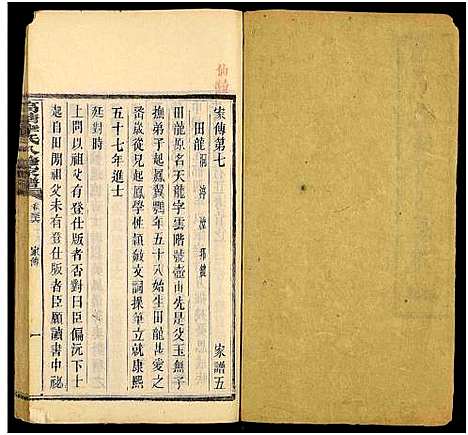 家傳第七　家譜五
田龍
田龍原名天龍字雲階號壺山先是父玉無子
撫弟子起鳳翼鸚年五十八始生田龍甚愛之
暨歲從兄起鳳學性穎敏文詞操筆立就康熙
五十七年進士
廷對時
上問以祖父有登仕版者否對曰臣偏沅下士
起自田間祖父未有登仕版者臣願讀書中祕
家傳
一
仙